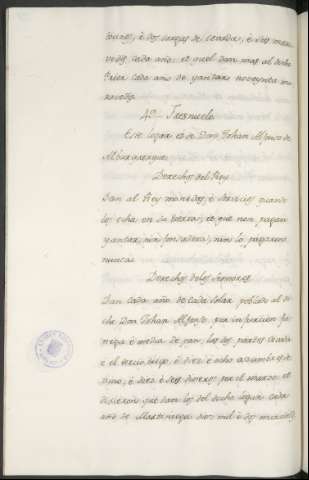 toures, è dos cargas de cevada, è seis mara-
vedis cada año. et quel dan mas al dicho
cada año de yantar noventa ma-
ravedis.
49=. Fresnuelo
Este logar es de Don Johan Alfonso de
Alburquerque
Derechos del Rey
Dan al Rey monedas, è servicios quando
los echa en su tierra; et que non pagan
yantar, nin fonsadera, nin lo pagaron
nunca.
Derechos de los Sennores
Dan cada año de cada solar poblado al di-
cho Don Johan Alfonso por infurcion fa-
nega è media de pan, las dos partes cevada
è el tercio trigo, è diez è ocho azumbres de
vino, è diez è seis dineros por el marzo. et
dixieron que dan los del dicho logar cada
año de Martiniega dos mil è dos maravedis